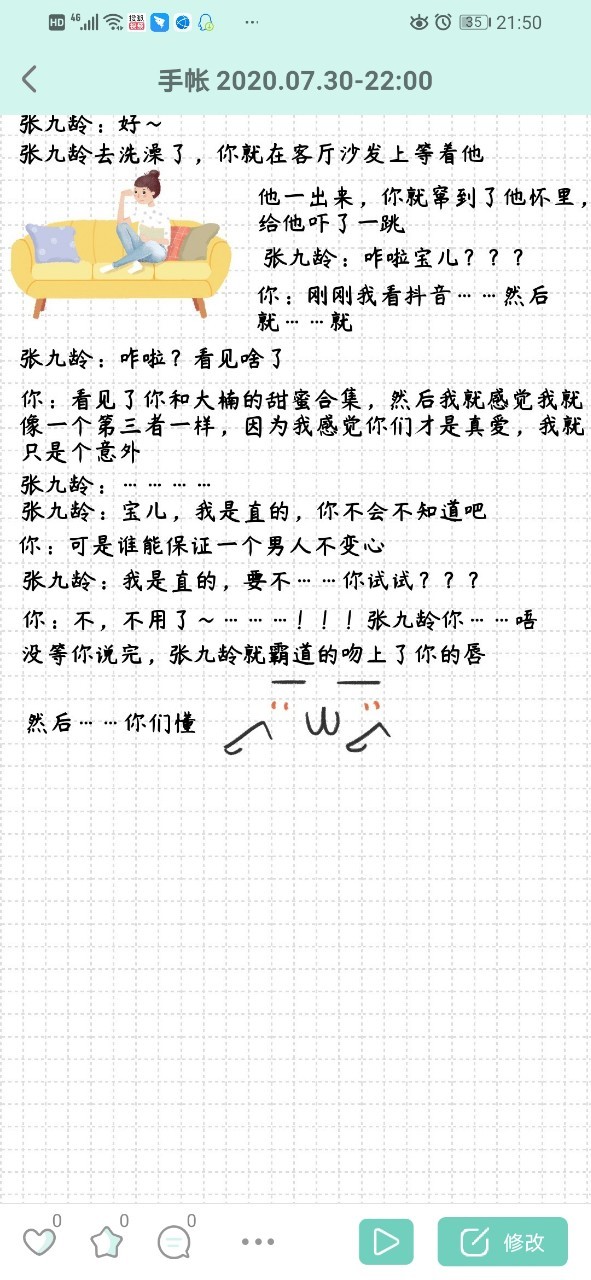 HD 4G 35 21:50
手帐 2020.07.30-22:00
张九龄：好~
张九龄去洗澡了，你就在客厅沙发上等着他
他一出来，你就窜到了他怀里，
给他吓了一跳
张九龄：咋啦宝儿？？？
你：刚刚我看抖音……然后
就……就
张九龄：咋啦？看见啥了
你：看见了你和大楠的甜蜜合集，然后我就感觉我就
像一个第三者一样，因为我感觉你们才是真爱，我就
只是个意外
张九龄：…………
张九龄：宝儿，我是直的，你不会不知道吧
你：可是谁能保证一个男人不变心
张九龄：我是直的，要不……你试试？？？
你：不，不用了~………！！！张九龄你……唔
没等你说完，张九龄就霸道的吻上了你的唇
然后……你们懂
0 0 0
修改